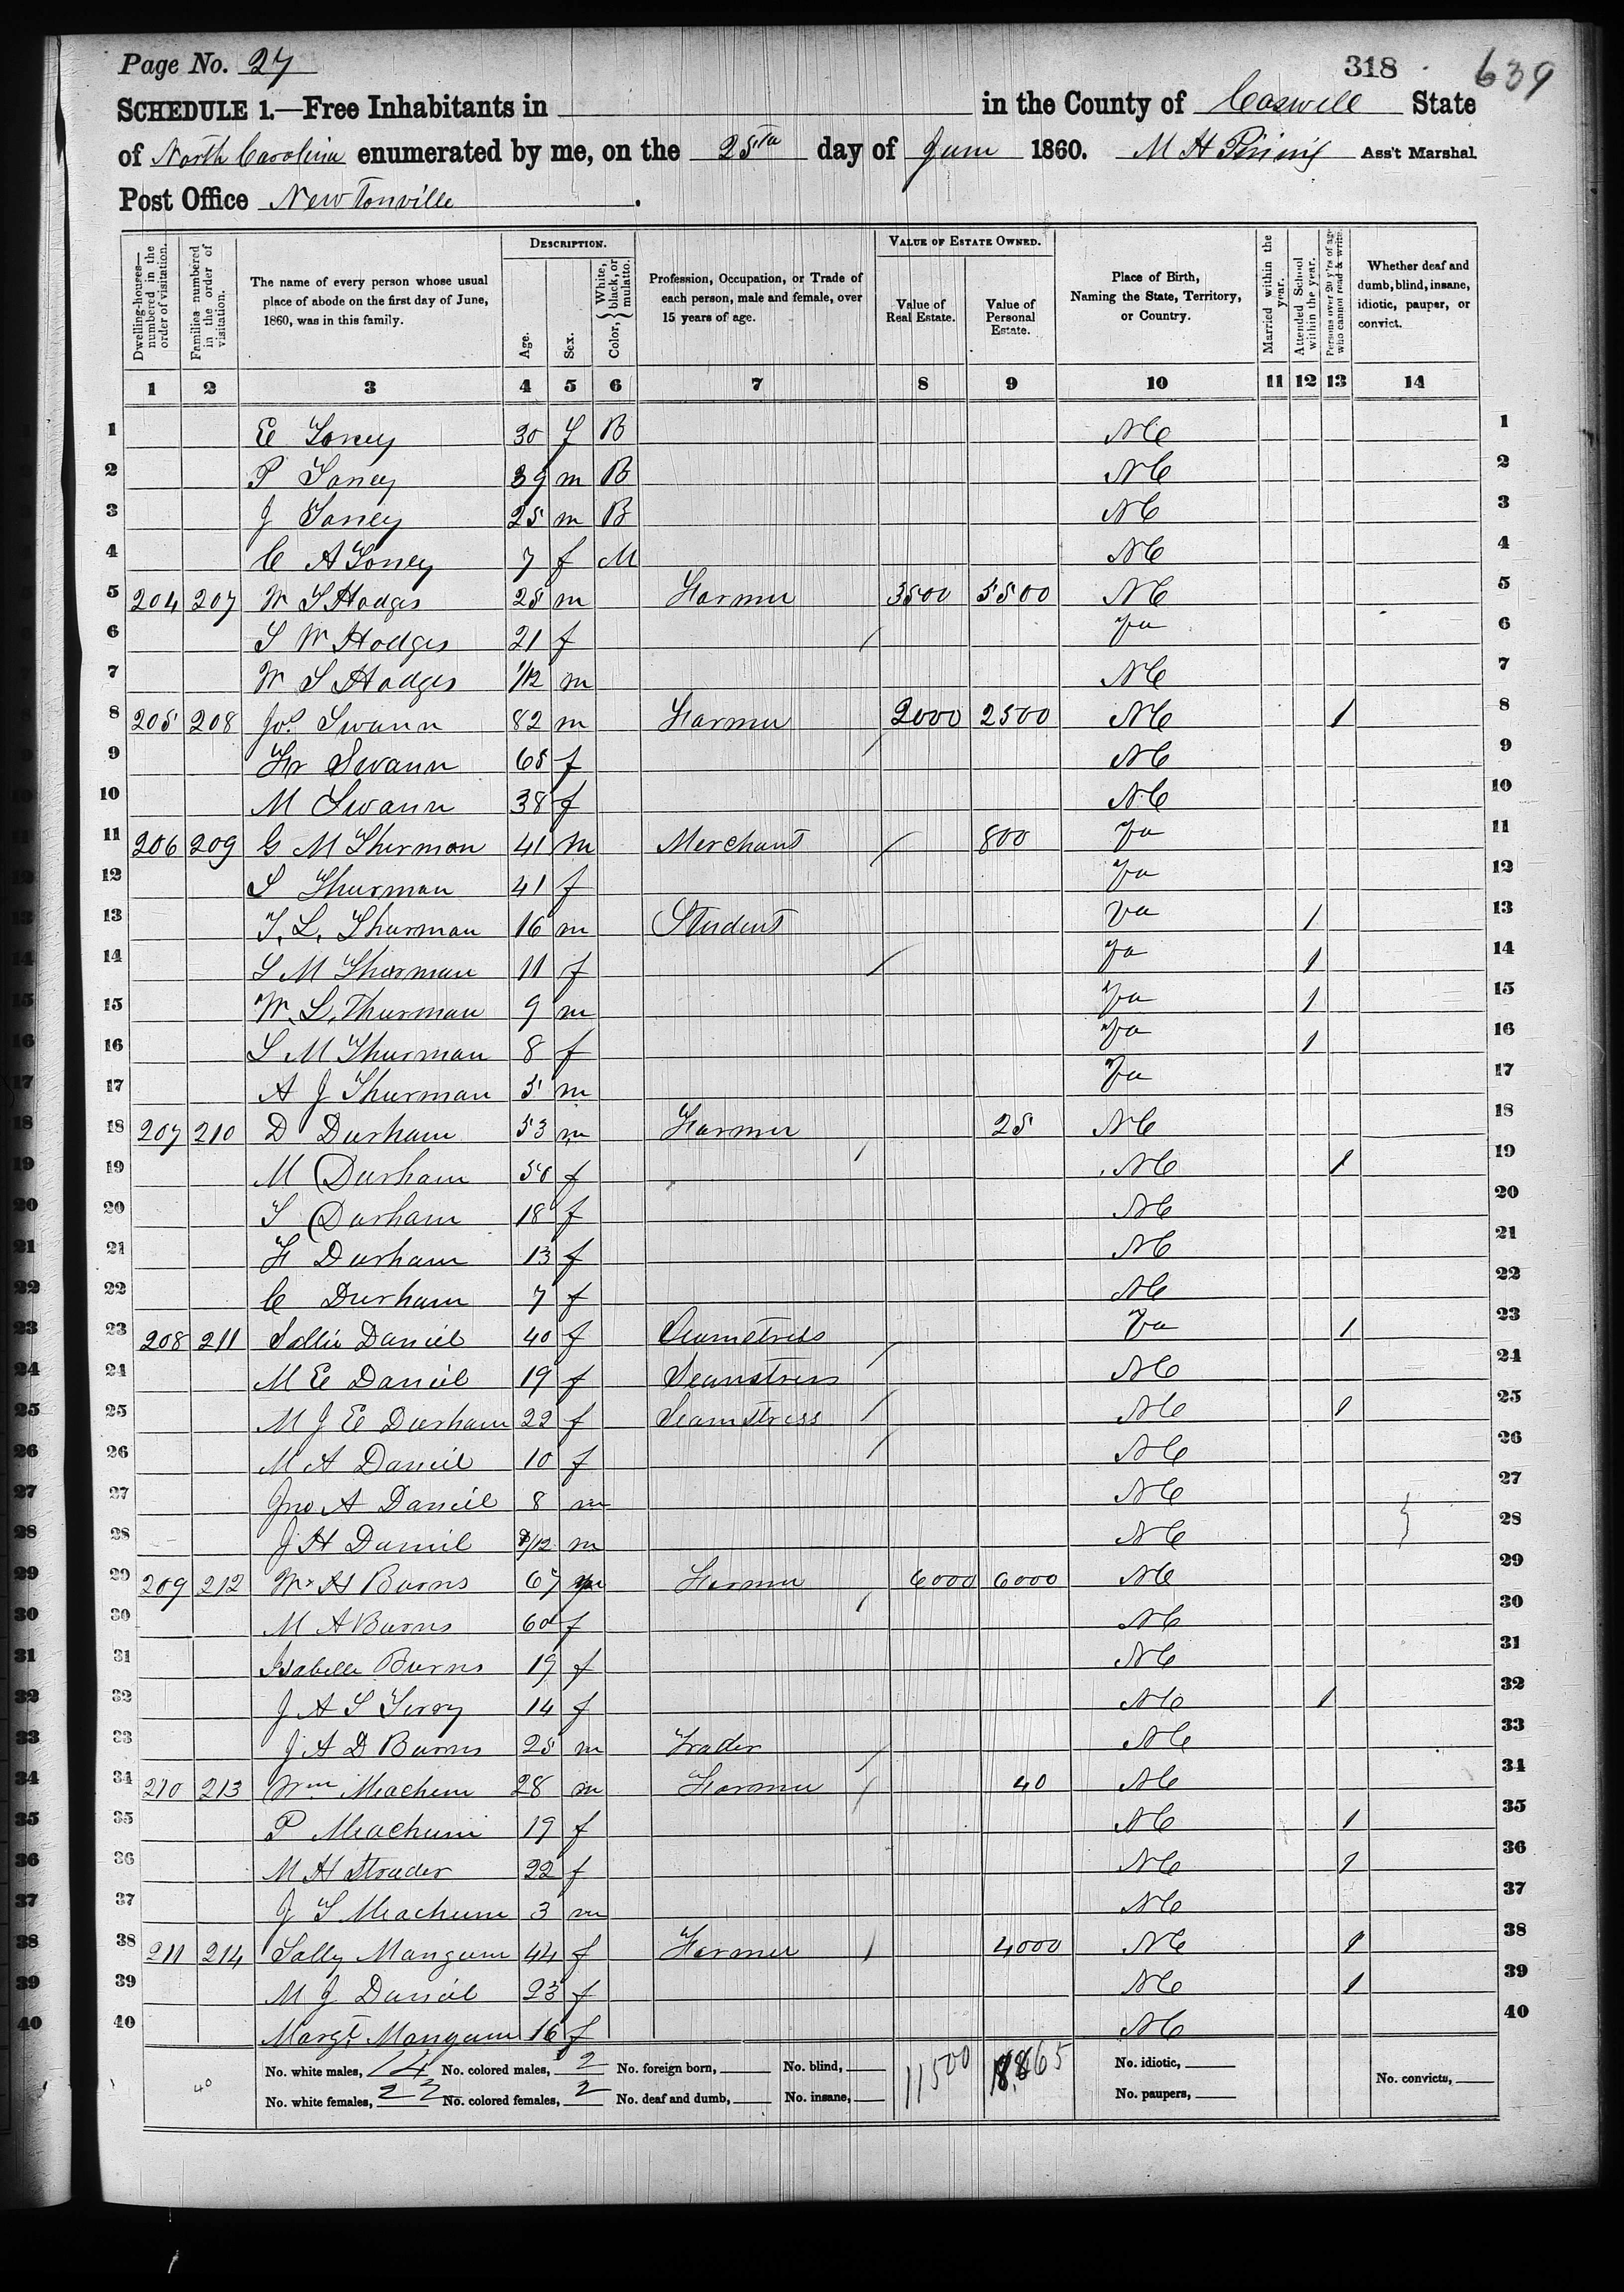 Page No. 27
318
639
SCHEDULE 1.—Free Inhabitants in in the County of Caswell State
of North Carolina enumerated by me, on the 25th day of June 1860. M H Ass't Marshal
Post Office Newtonville.
Dwelling-houses—numbered in the order of visitation.
Families numbered in the order of visitation.
The name of every person whose usual place of abode on the first day of June, 1860, was in this family.
DESCRIPTION.
Age.
Sex.
Color, White, black, or mulatto.
Profession, Occupation, or Trade of each person, male and female, over 15 years of age.
VALUE OF ESTATE OWNED.
Value of Real Estate.
Value of Personal Estate.
Place of Birth, Naming the State, Territory, or Country.
Married within the year.
Attended School within the year.
Persons over 20 y'rs of age who cannot read & write.
Whether deaf and dumb, blind, insane, idiotic, pauper, or convict.
1 2 3 4 5 6 7 8 9 10 11 12 13 14
1 E 30 f B NC 1
2 P 39 m B NC 2
3 J 25 m B NC 3
4 C A 7 f M NC 4
5 204 207 W S Hodges 25 m Farmer 3500 5500 NC 5
6 S W Hodges 21 f Va 6
7 W S Hodges 1/12 m NC 7
8 205 208 Jos Swann 82 m Farmer 2000 2500 NC 1 8
9 Swann 65 f NC 9
10 M Swann 38 f NC 10
11 206 209 G M Thurman 41 m Merchant 800 Va 11
12 S Thurman 41 f Va 12
13 T. L. Thurman 16 m Student Va 1 13
14 S M Thurman 11 f Va 1 14
15 W. L. Thurman 9 m Va 1 15
16 S M Thurman 8 f Va 1 16
17 A J Thurman 5 m Va 17
18 207 210 D Durham 53 m Farmer 25 NC 18
19 M Durham 50 f NC 1 19
20 S Durham 18 f NC 20
21 F Durham 13 f NC 21
22 C Durham 7 f NC 22
23 208 211 Sallie Daniel 40 f Seamstress Va 1 23
24 M E Daniel 19 f Seamstress NC 24
25 M J E Durham 22 f Seamstress NC 1 25
26 M A Daniel 10 f NC 26
27 Jno A Daniel 8 m NC 27
28 J H Daniel /12 m NC 28
29 209 212 Wm H Burns 67 m Farmer 6000 6000 NC 29
30 M A Burns 60 f NC 30
31 Isabella Burns 19 f NC 31
32 J A S Terry 14 f NC 1 32
33 J A D Burns 25 m Trader NC 33
34 210 213 Wm Meachum 28 m Farmer 40 NC 34
35 P Meachum 19 f NC 1 35
36 M H Strader 22 f NC 1 36
37 J S Meachum 3 m NC 37
38 211 214 Sally Mangum 44 f Farmer 4000 NC 1 38
39 M J Daniel 23 f NC 1 39
40 Margt Mangum 16 f NC 40
40
No. white males, 14 No. colored males, 2 No. foreign born, No. blind, 11500 No. idiotic,
No. white females, 22 No. colored females, 2 No. deaf and dumb, No. insane, No. paupers, No. convicts,